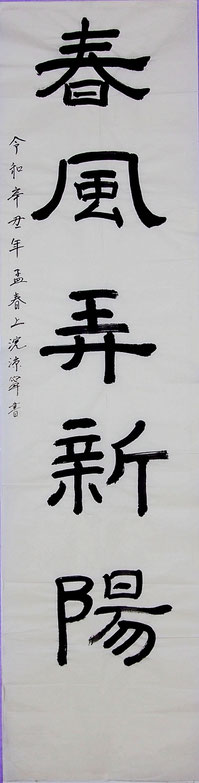 春風弄新陽
令和辛丑年孟春上浣沛寧書